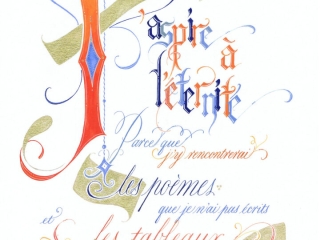 J'aspire
à
l'éternité
Parce que
j'y rencontrerai
les poèmes
que je n'ai pas écrits
et
les tableaux